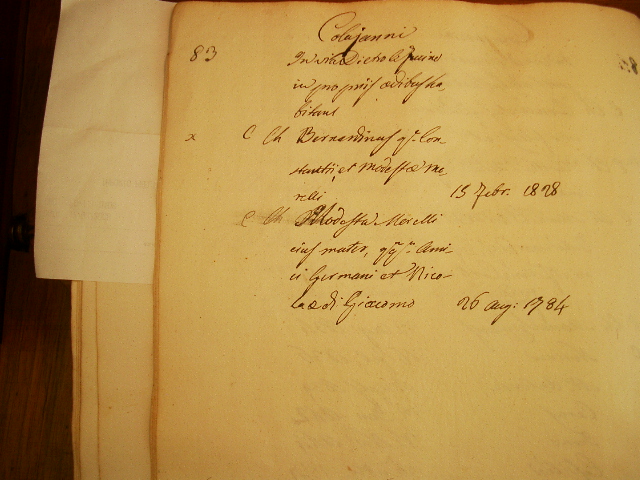 Colajanni
83 In via Dicta le
in propriis ædibus ha,
bitant
x C Ch Bernardinus qm Con-
stantii, et Modestæ Me
relli 15 Febr. 1828
C Ch Modesta Morelli
eius mater, Ami-
ci Germani et Nico-
laæ di Giacomo 26 aug: 1784